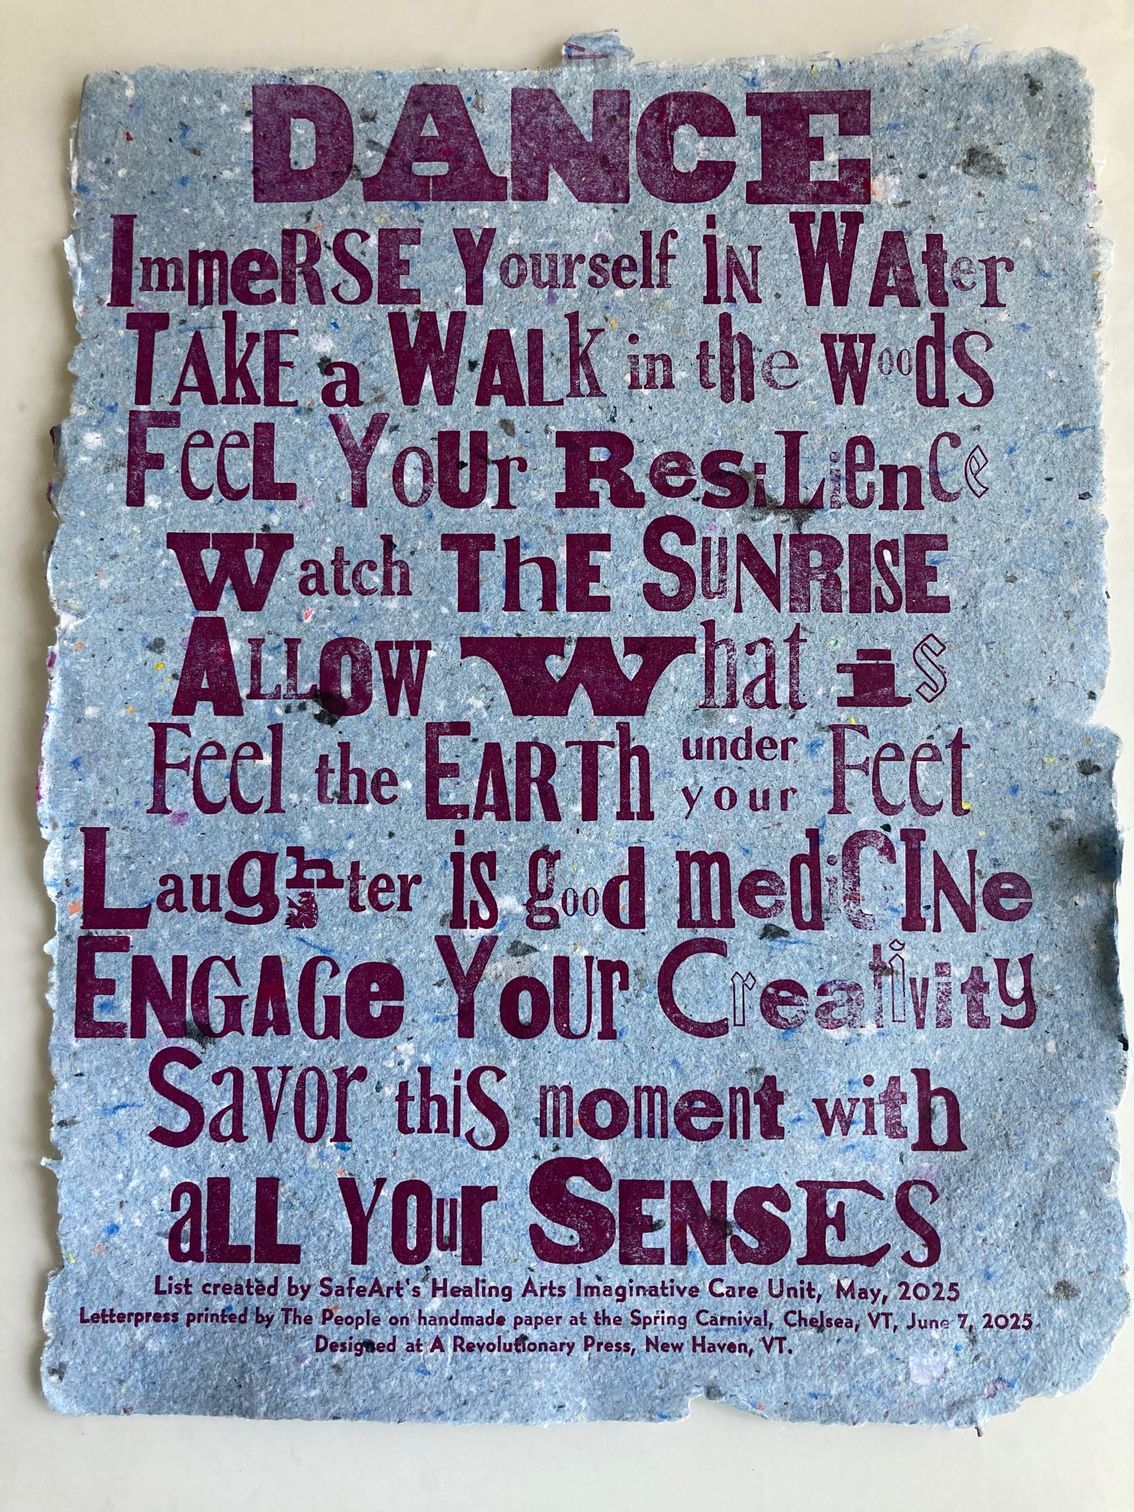 DANCE
ImmeRSE Yourself iN WAter
TAkE a WALk in the WoodS
FeeL YoUr ResiLienCe
Watch ThE SuNRISE
ALLOW What is
Feel the EARTh under your Feet
Laughter is good mediCINe
ENGAGe YoUr Creativity
Savor thiS moment with
aLL YOur SENSES
List created by SafeArt's Healing Arts Imaginative Care Unit, May, 2025
Letterpress printed by The People on handmade paper at the Spring Carnival, Chelsea, VT, June 7, 2025.
Designed at A Revolutionary Press, New Haven, VT.